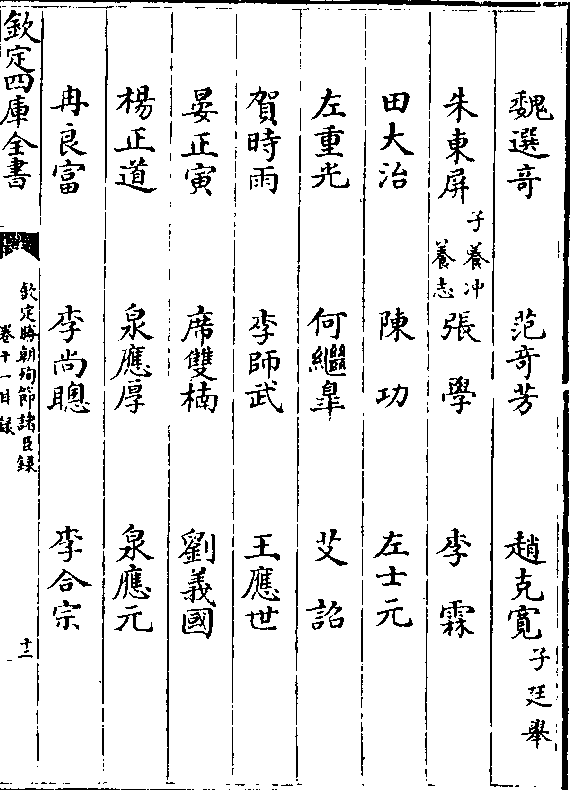 魏選竒 范竒芳 趙克寛子廷舉
朱東屏子養冲養志 張學 李霖
田大治 陳功 左士元
左重光 何繼臯 艾詔
賀時雨 李師武 王應世
晏正寅 席雙楠 劉義國
楊正道 泉應厚 泉應元
冉良富 李尚聰 李合宗
欽定四庫全書 欽定勝朝殉節諸臣録 卷十一目録 十二